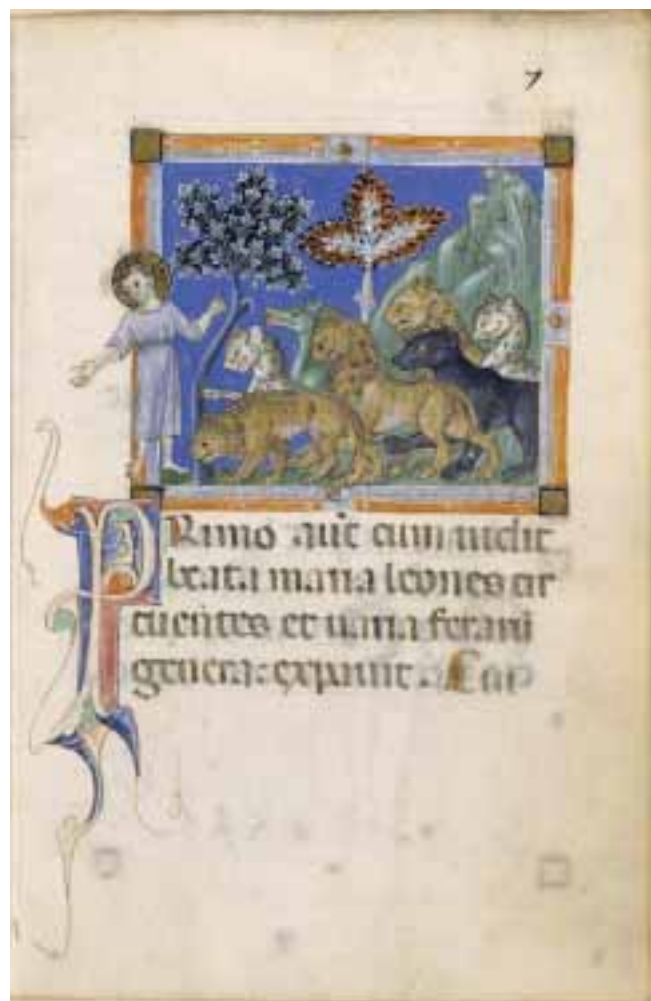 7
PRimo aut cum uidit
beata maria leones cir
cuentes et uaria ferarũ
genera: expauit.